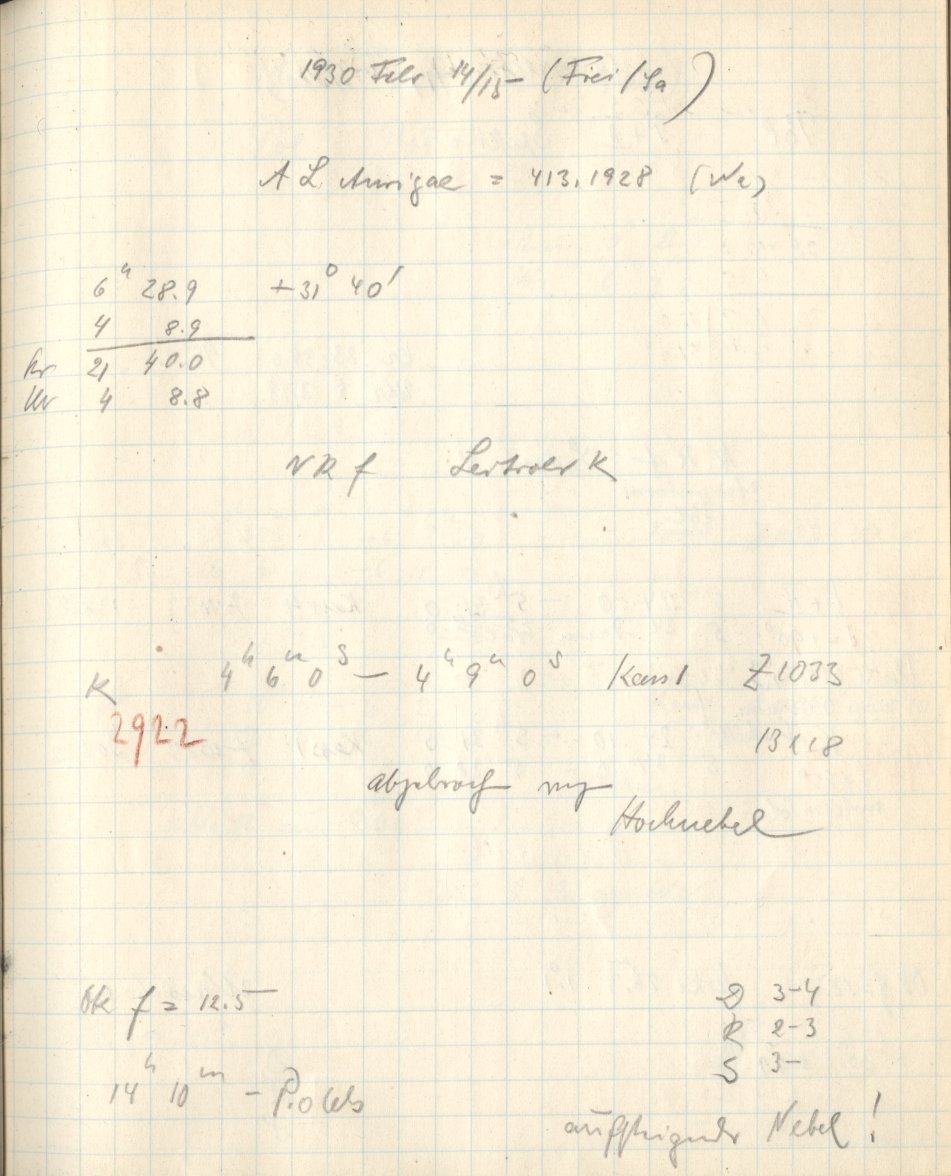 1930 Febr 14/15 (Frei/Sa)
AL Aurigae = 413.1928 (Wa)
6h 28.9 +31° 40'
4 8.9
21 40.0
4 8.8
NR f Leitrohr K
K 4h 6m 0s — 4h 9m 0s Kass 1 Z1033
2922 13x18
abgebroch wg
Hochnebel
Ok f = 12.5
D 3-4
R 2-3
S 3-
14h 10m -
aufsteigender Nebel!